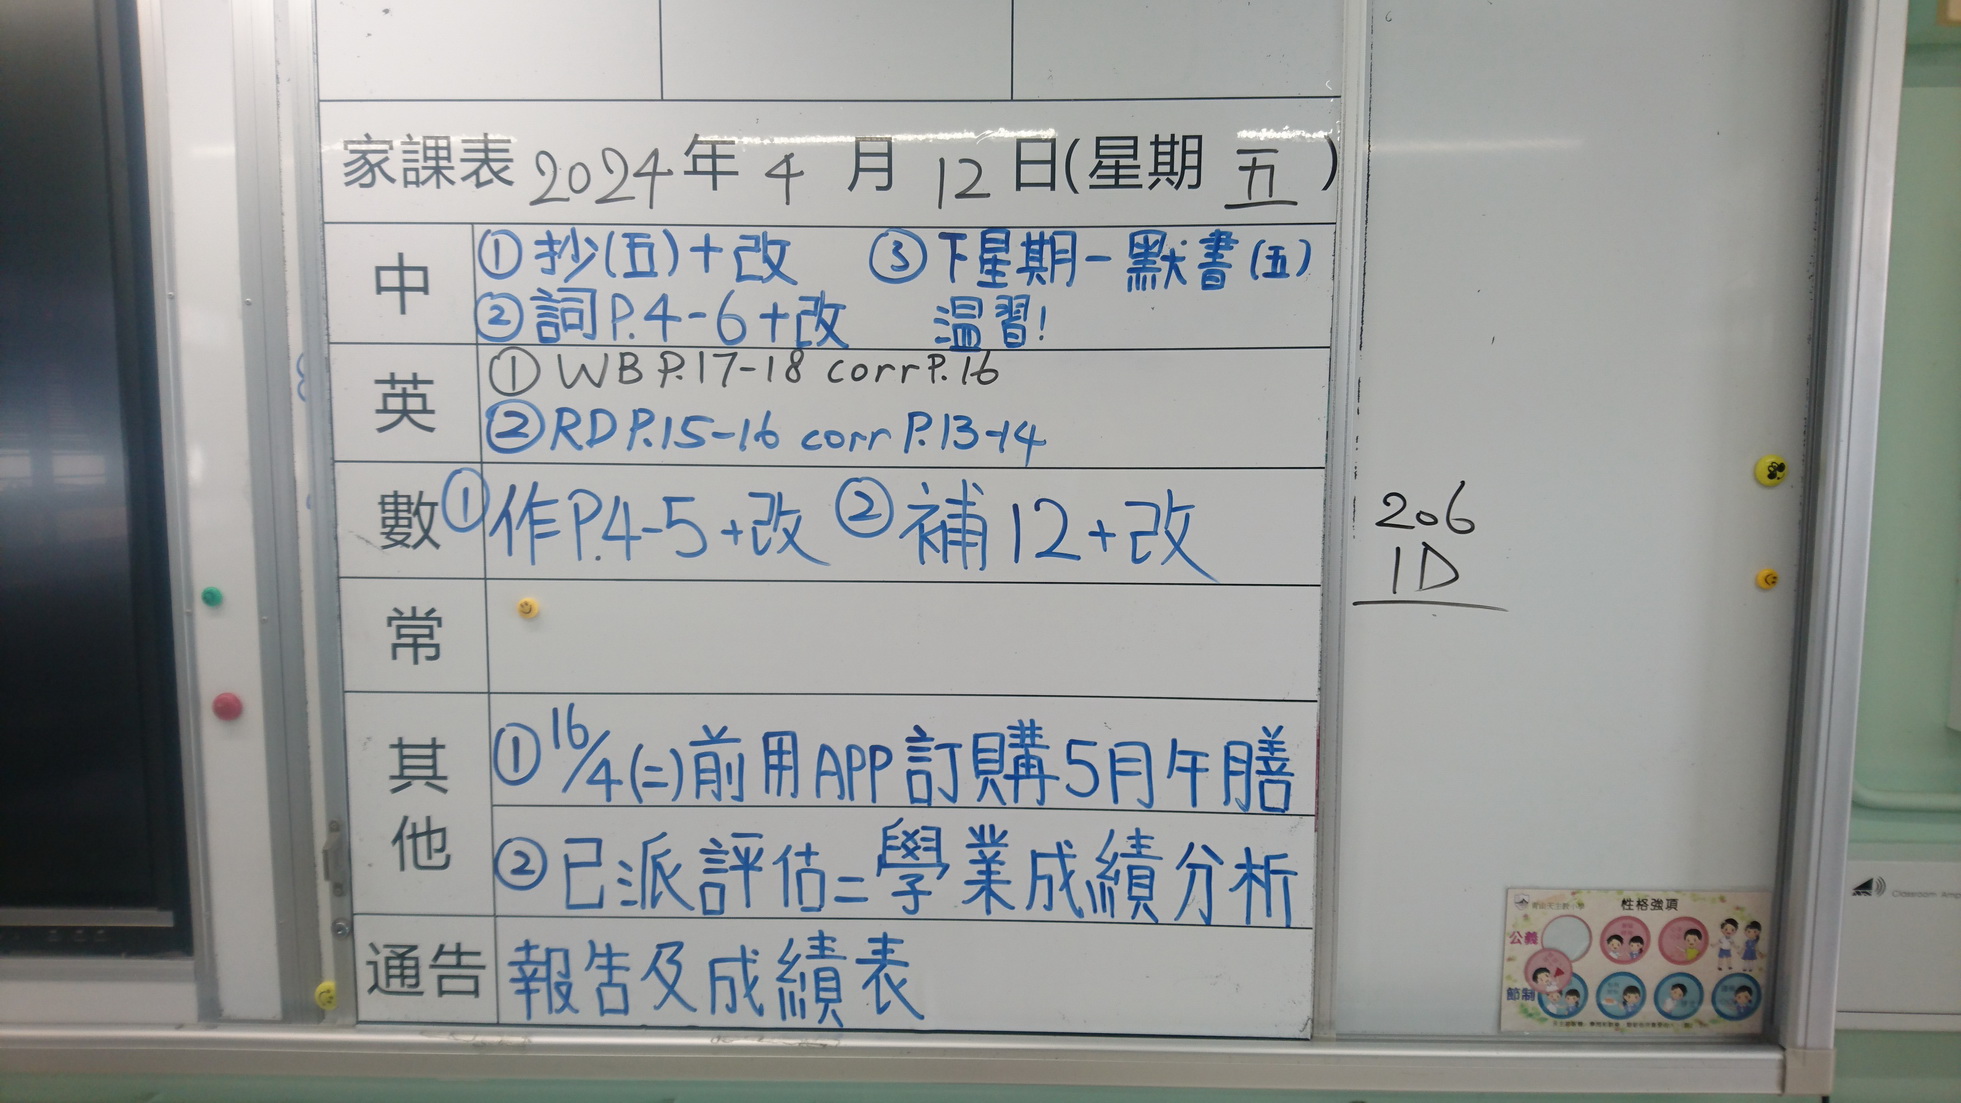 家課表 2024年 4 月 12 日(星期 五 )
中
① 抄(五)+改 ③ 下星期一默書(五)
② 詞P.4-6+改 温習!
英
① WB P.17-18 corr P.16
② RD P.15-16 corr P.13-14
數
① 作P.4-5+改 ② 補12+改
常
其他
① 16/4(二)前用APP訂購5月午膳
② 已派評估二學業成績分析
通告
報告及成績表
206
1D
性格強項
公義
節制